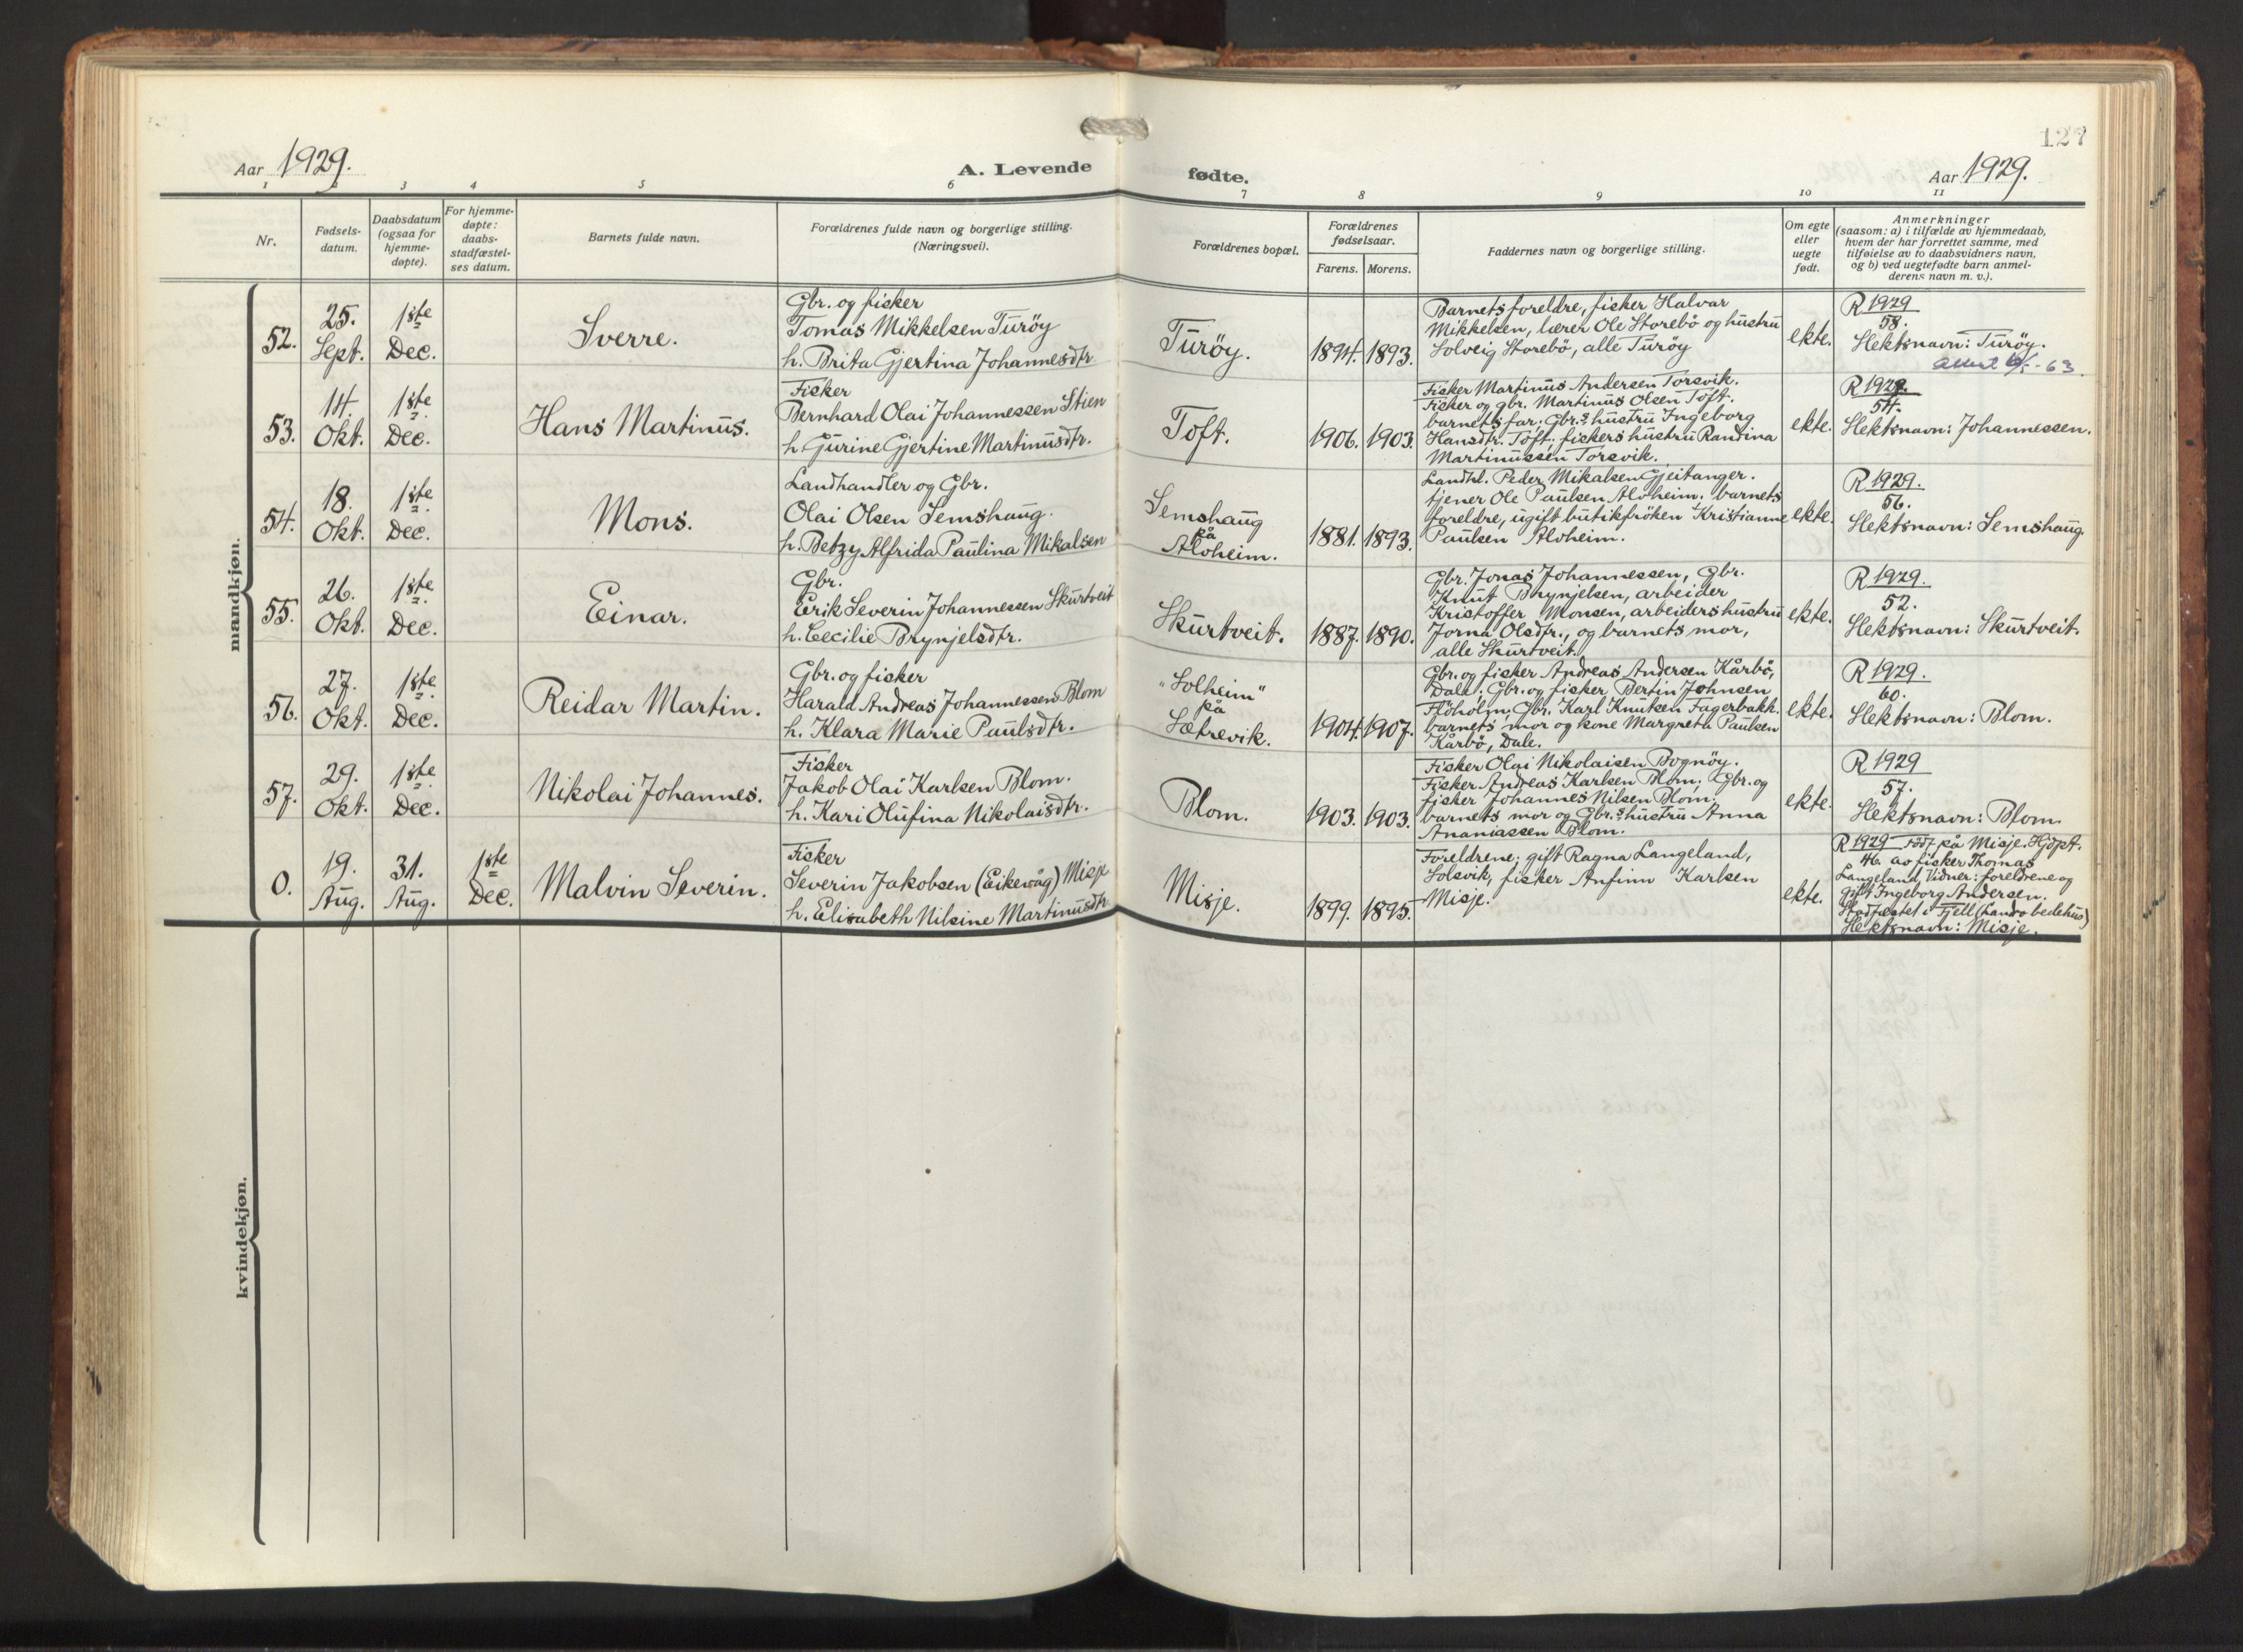 127
Aar 1929.
A. Levende fødte.
Aar 1929.
1 2 3 4 5 6 7 8 9 10 11
Nr.
Fødsels-
datum.
Daabsdatum
(ogsaa for
hjemme-
døpte).
For hjemme-
døpte:
daabs-
stadfæstel-
ses datum.
Barnets fulde navn.
Forældrenes fulde navn og borgerlige stilling.
(Næringsvei).
Forældrenes bopæl.
Forældrenes
fødselsaar.
Farens.
Morens.
Faddernes navn og borgerlige stilling.
Om egte
eller
uegte
født.
Anmerkninger
(saasom: a) i tilfælde av hjemmedaab,
hvem der har forrettet samme, med
tilføielse av to daabsvidners navn,
og b) ved uegtefødte barn anmel-
derens navn m. v.).
mandkjøn.
52.
25.
Sept.
1ste
Dec.
Sverre.
Gbr. og fisker
Tomas Mikkelsen Turöy
h. Brita Gjertina Johannesdtr
Turöy.
1894.
1893.
Barnets foreldre, fisker Halvar
Mikkelsen, lærer Ole Storebö og hustru
Solveig Storebö, alle Turöy
ekte.
R 1929
58.
Slektsnavn: Turöy.
-63.
53.
14.
Okt.
1ste
Dec.
Hans Martinus.
Fisker
Bernhard Olai Johannessen Stien
h. Gurine Gjertine Martinusdtr.
Toft.
1906.
1903.
Fisker Martinus Andersen Torsvik.
Fisker og gbr. Martinus Olsen Toft.
barnets far; Gbr.s hustru Ingeborg
Hansdtr. Toft; fiskers hustru Randina
Martinussen Torsvik.
ekte.
R 1929.
54.
Slektsnavn: Johannessen.
54.
18.
Okt.
1ste
Dec.
Mons.
Landhandler og Gbr.
Olai Olsen Semshaug.
h. Betzy Alfrida Paulina Mikalsen
Semshaug
på
Alvheim.
1881.
1893.
Landhl. Peder Mikalsen Gjeitanger.
tjener Ole Paulsen Alvheim. barnets
foreldre, ugift butikfröken Kristianne
Paulsen Alvheim.
ekte.
R 1929.
56.
Slektsnavn: Semshaug.
55.
26.
Okt.
1ste
Dec.
Einar.
Gbr.
Erik Severin Johannessen Skurtveit
h. Cecilie Brynjelsdtr.
Skurtveit.
1887.
1890.
Gbr. Jonas Johannessen, Gbr.
Knut Brynjelsen, arbeider
Kristoffer Monsen, arbeiders hustru
Jorna Olsdtr., og barnets mor,
alle Skurtveit.
ekte.
R 1929.
52.
Slektsnavn: Skurtveit.
56.
27.
Okt.
1ste
Dec.
Reidar Martin.
Gbr. og fisker
Harald Andreas Johannessen Blom
h. Klara Marie Paulsdtr.
"Solheim"
på
Sætrevik.
1904.
1907.
Gbr. og fisker Andreas Andersen Kårbö,
Dale; Gbr. og fisker Bertin Johnsen
Flöholm; Gbr. Karl Knutsen Fagerbakk.
barnets mor og kone Margreta Paulsen
Kårbö, Dale.
ekte.
R 1929.
60.
Slektsnavn: Blom.
57.
29.
Okt.
1ste
Dec.
Nikolai Johannes.
Fisker
Jakob Olai Karlsen Blom.
h. Kari Olufina Nikolaisdtr.
Blom.
1903.
1903.
Fisker Olai Nikolaisen Bognöy.
Fisker Andreas Karlsen Blom; Gbr. og
fisker Johannes Nilsen Blom.
barnets mor og Gbr.s hustru Anna
Ananiassen Blom.
ekte.
R 1929
57.
Slektsnavn: Blom.
0.
19.
Aug.
31.
Aug.
1ste
Dec.
Malvin Severin.
Fisker
Severin Jakobsen (Eikevåg) Misje
h. Elisabeth Nilsine Martinusdtr
Misje.
1899.
1895.
Foreldrene; gift Ragna Langeland,
Solsvik, fisker Anfinn Karlsen
Misje.
ekte.
R 1929 född på Misje. Hjdpt.
46. av fisker Thomas
Langeland, Vidner: foreldrene og
gift Ingeborg Andersen.
Stadfæstet i Fjell (Landro bedehus)
Slektsnavn: Misje.
kvindekjøn.